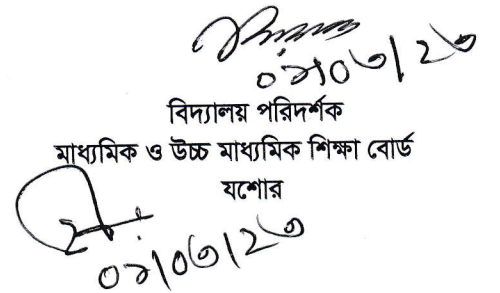 ০২/০৩/২৩
বিদ্যালয় পরিদর্শক
মাধ্যমিক ও উচ্চ মাধ্যমিক শিক্ষা বোর্ড
যশোর
০২/০৩/২৩